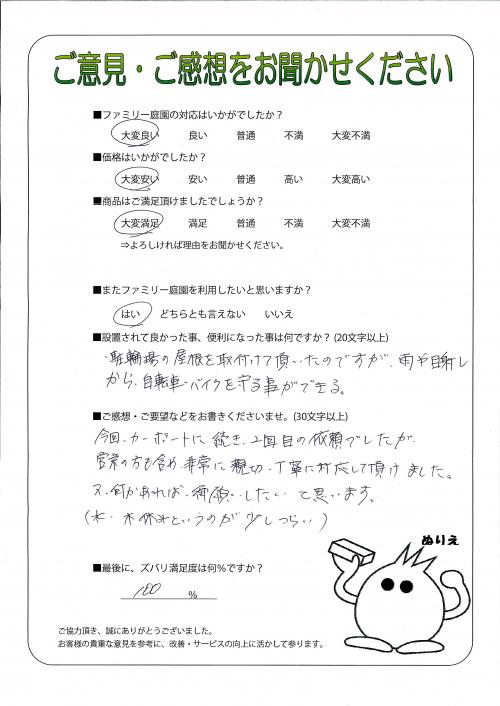 ご意見・ご感想をお聞かせください
■ファミリー庭園の対応はいかがでしたか?
大変良い 良い 普通 不満 大変不満
■価格はいかがでしたか?
大変安い 安い 普通 高い 大変高い
■商品はご満足頂けましたでしょうか?
大変満足 満足 普通 不満 大変不満
⇒よろしければ理由をお聞かせください。
■またファミリー庭園を利用したいと思いますか?
はい どちらとも言えない いいえ
■設置されて良かった事、便利になった事は何ですか?(20文字以上)
・駐輪場の屋根を取付けて頂いたのですが、雨や日射し
から、自転車・バイクを守る事ができる。
■ご感想・ご要望などをお書きくださいませ。(30文字以上)
今回、カーポートに続き、2回目の依頼でしたが、
営業の方も含め、非常に親切・丁寧に対応して頂けました。
又、何かあれば、御願いしたいと思います。
(水・木休みというのが少しつらい)
ぬりえ
■最後に、ズバリ満足度は何%ですか?
100 %
ご協力頂き、誠にありがとうございました。
お客様の貴重な意見を参考に、改善・サービスの向上に活かして参ります。